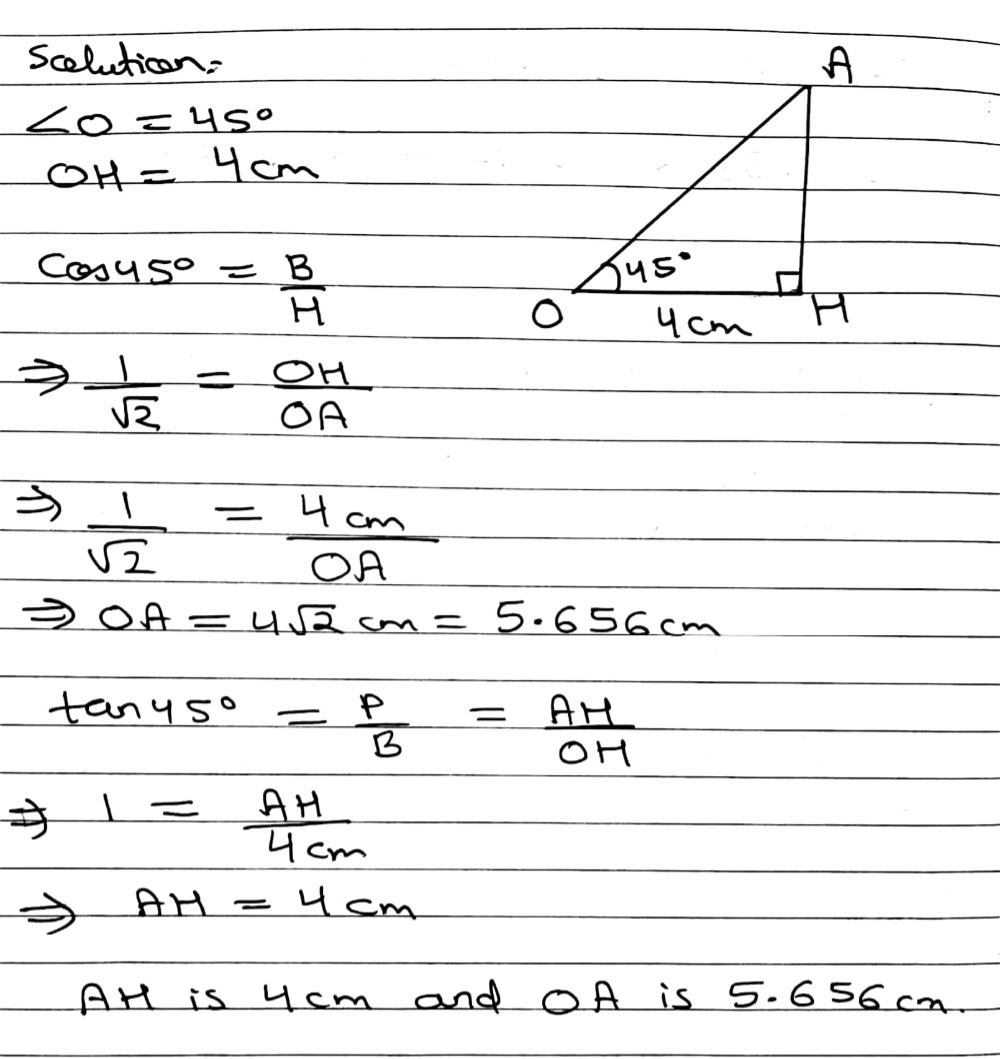 Scelution:-
A
∠O = 45°
OH = 4 cm
45°
O 4 cm H
Cos 45° = B/H
⇒ 1/√2 = OH/OA
⇒ 1/√2 = 4 cm/OA
⇒ OA = 4√2 cm = 5.656 cm
tan 45° = P/B = AH/OH
⇒ 1 = AH/4 cm
⇒ AH = 4 cm
AH is 4 cm and OA is 5.656 cm.